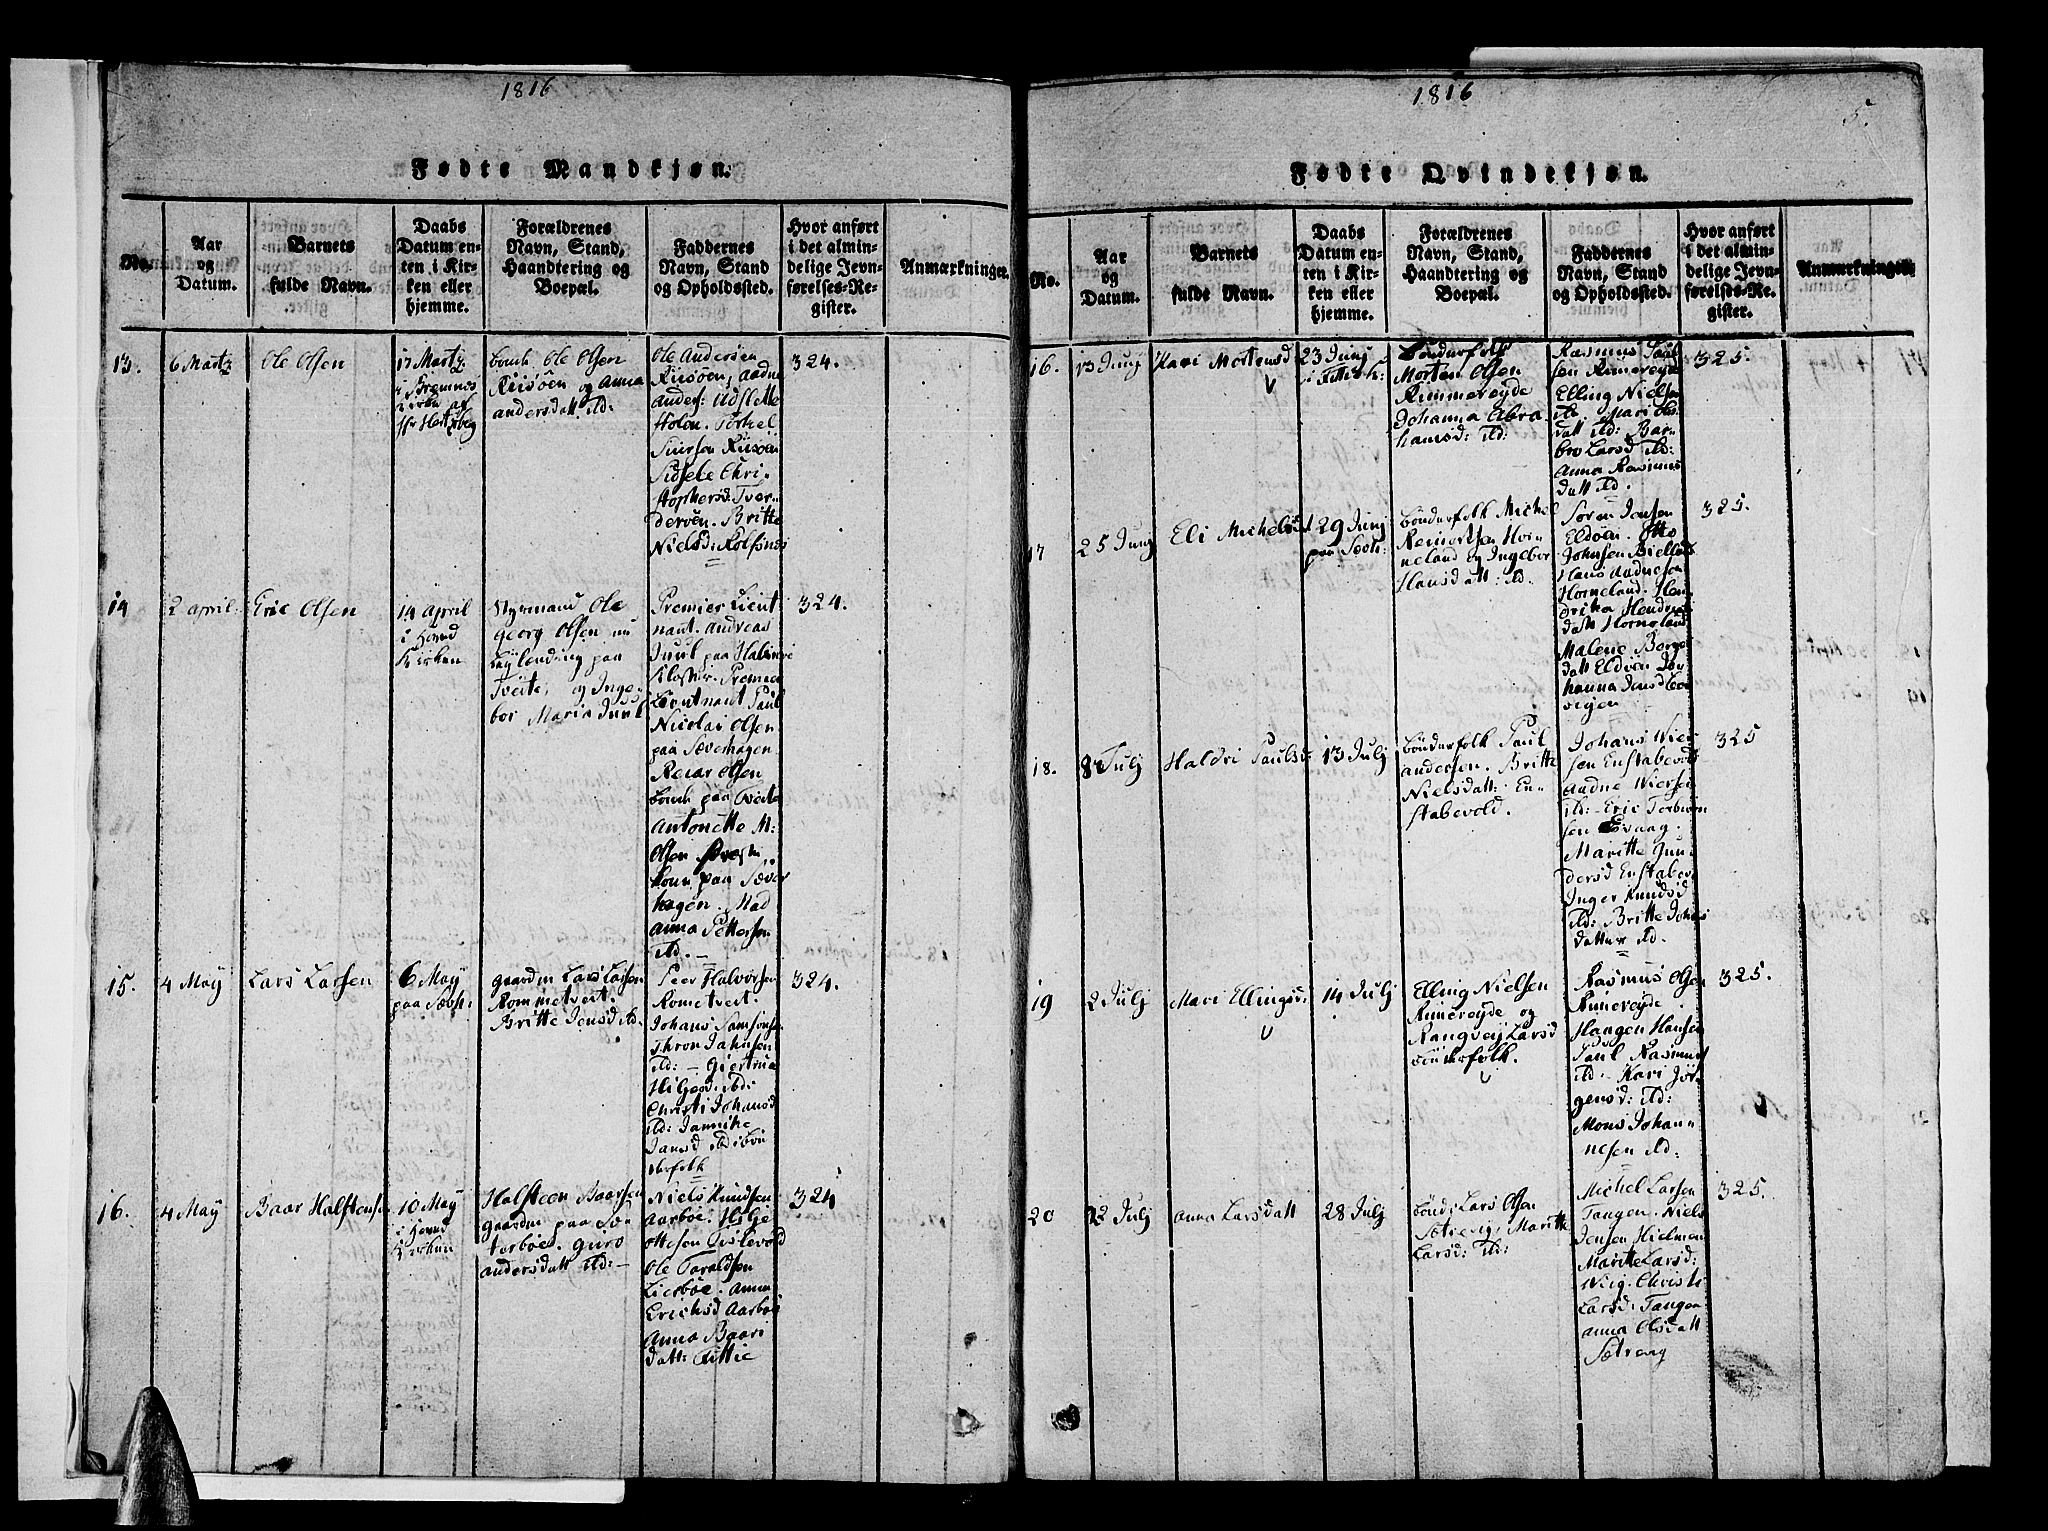 1816
Fødte Mandkjøn.
No.
Aar
og
Datum.
Barnets
fulde Navn.
Daabs
Datum en-
ten i Kir-
ken eller
hjemme.
Forældrenes
Navn, Stand,
Haandtering og
Boepæl.
Faddernes
Navn, Stand
og Opholdssted.
Hvor anført
i det almin-
delige Jevn-
førelses-Re-
gister.
Anmærkninger.
13.
6 Martz
Ole Olsen
17 Martz
i Bremnes
Kirke af
Hr Hertzberg
bonde Ole Olsen
Riisöen og Anna
andersdatt ibd:
Ole Andersen
Riisöen, Aadne
Anders:
Holen. Torkel
Siursen Riisöen
Sidsele Chri-
stophersd: Tver-
deröen. Britte
Nielsd: Rolfsnes
324.
14
2 april
Eric Olsen
14 april
i
Kirken
Styrmand Ole
georg Olsen nu
paa
Tveite, og Inge-
bor Maria Juul
Premier Lieut
nant. Andreas
Juul paa
Kloster. Premier
Lieutnant Paul
Nicolai Olsen
paa Sæverhagen
Reiar Olsen
bonde paa Tveite
Antonette M:
Olsen
paa Sæver
hagen. Mad
Anna Pettersen
ibd. —
324.
15.
4 May
Lars Larsen
6 May
paa
gaardm Lars Larsen
Rommetveit.
Britte Jensd ibd.
Peer Halvorsen
Rometveit.
Johans Samsons.
Thron Jahnsen
ibd: — Giertrud
Helgesd: ibd:
Christi Johansd
ibd: Jannike
Jansd ibd: bön
derfolk
324.
16.
4 May
Baar Halstens:
10 May
i
Kirken
Halsteen Baarsen
gaardm paa
guro
andersdatt ibd: —
Niels Knudsen
Aarböe. Hilje
Ottesen
Ole Taraldsen
Lierböe. Anna
Erichsd Aarböe
Anna Baars
datt: Fittie
324
1816
5.
Fødte Qvindekjøn.
No.
Aar
og
Datum.
Barnets
fulde Navn.
Daabs
Datum en-
ten i Kir-
ken eller
hjemme.
Forældrenes
Navn, Stand,
Haandtering og
Boepæl.
Faddernes
Navn, Stand
og Opholdssted.
Hvor anført
i det almin-
delige Jevn-
førelses-Re-
gister.
Anmærkninger.
16.
13 Junj
Kari Mortensd
23 Junj
i
Bönderfolk
Morten Olsen
Rimmereyde
Johanna Abra
hamsd: ibd:
Rasmus Paul
sen Rimereyde
Elling Nielsen
ibd. Mari
datt ibd: Bar-
bro Larsd ibd:
Anna Rasmus
datt ibd.
325.
17
25 Junj
Eli Michelsd
29 Junj
paa
bönderfolk Michel
Reinertsen Hor-
neland og Ingebor
Hansdatt: ibd.
Sören Jensen
Eldöen. Otto
Johnsen
Hans Aadnesen
Horneland. Hen-
drika Hendrics
datt Horneland
Malene Børge
datt Eldöen Jo-
hanna Jensd
325.
18.
8 Julj
Haldri Paulsd
13 Julj
bönderfolk Paul
andersen. Britte
Nielsdatt: En-
stabevold.
Johans Nier
sen Enstabevold
Aadne Niersen
ibd: Eric Torbiörn
sen
Maritte
Enstabev
Inger Knudsd
ibd: Britte Johans
datter ibd.
325
19
2 Julj
Mari Ellingsd
14 Julj
Elling Nielsen
Rimereyde og
Rangvej Larsd
bönderfolk.
Rasmus Olsen
Rimereyde
Haagen Hansen
Paul Rasmus
ibd. Kari Jör-
gensd: ibd:
Mons Johan-
nesen ibd:
325.
20
22 Julj
Anna Larsdatt
28 Julj
bönd: Lars Olsen
Maritte
Larsd: ibd:
Michel Larsen
Tangen. Niels
Jensen
Maritte Larsd:
Christi
Larsd: Tangen
anna Olsdatt
325.